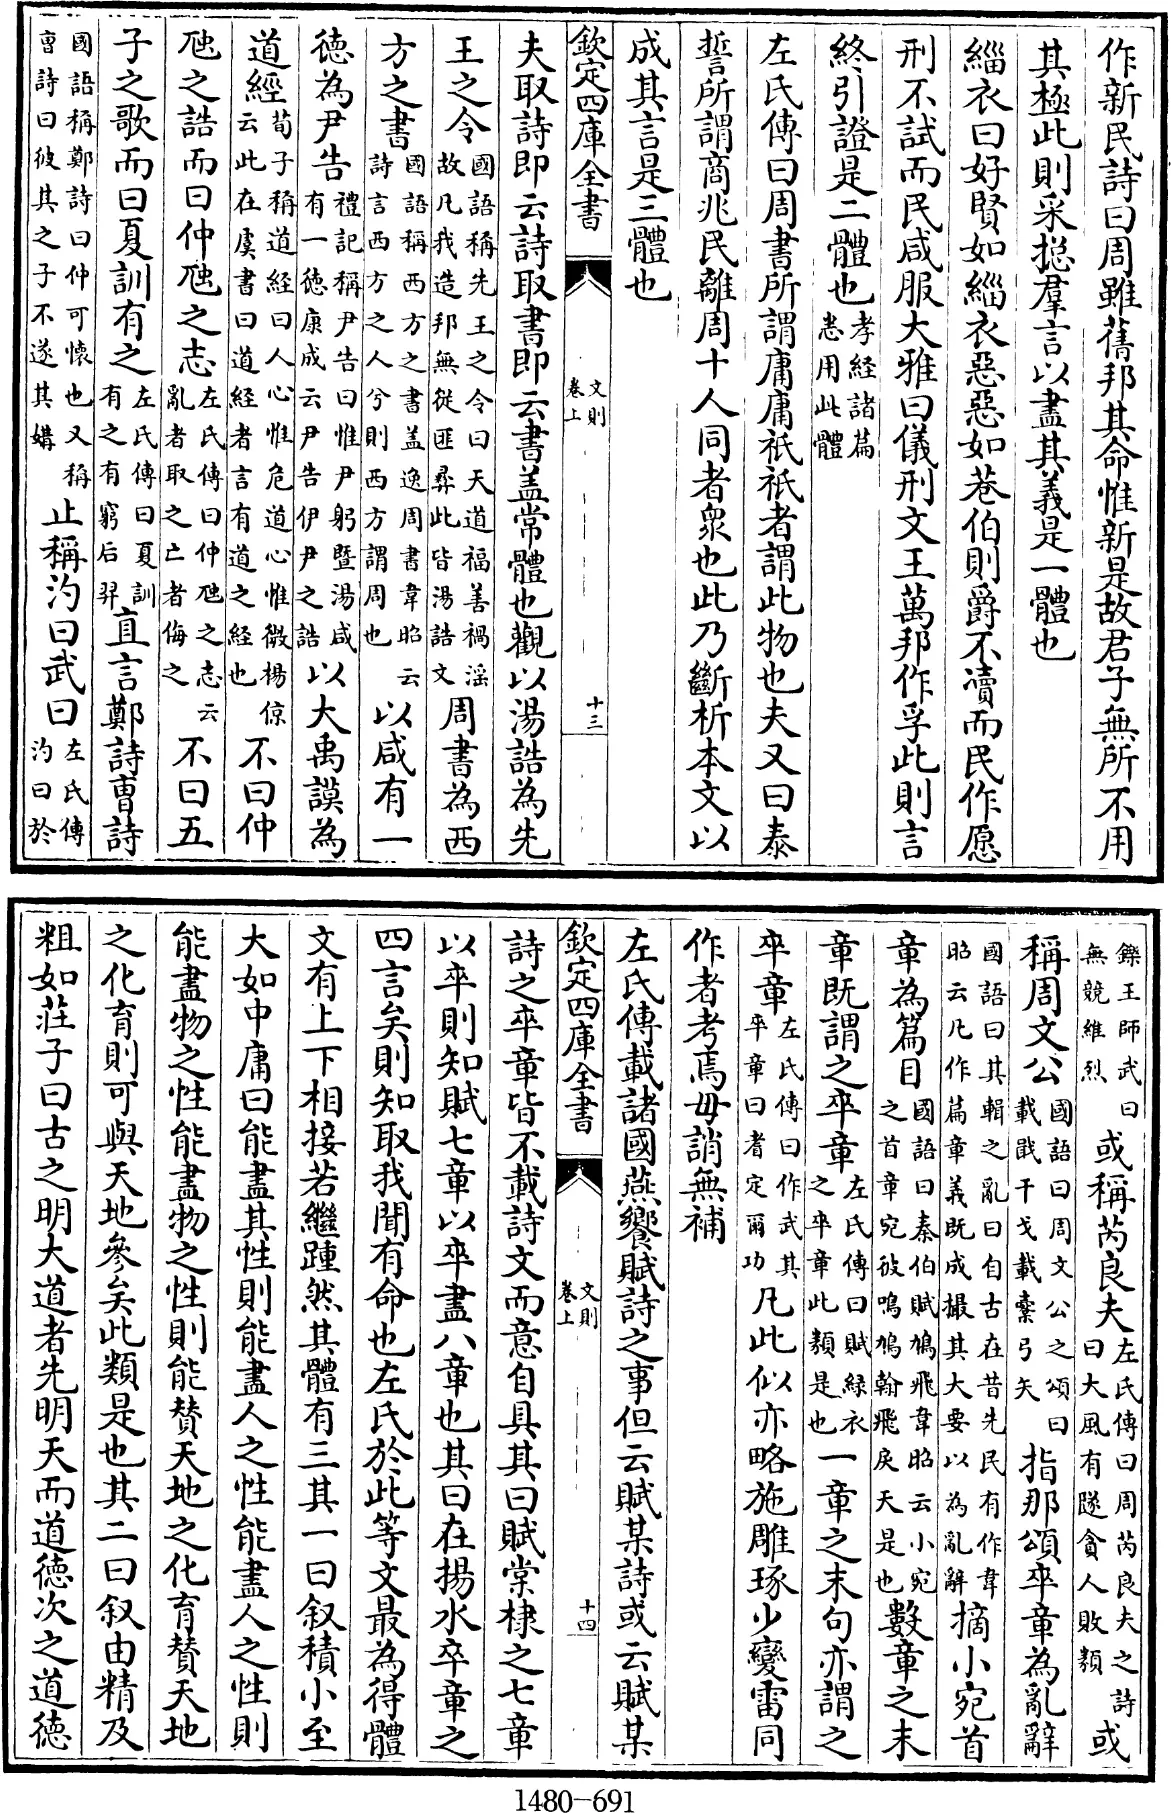 作新民詩曰周雖舊邦其命惟新是故君子無所不用
其極此則采摠羣言以盡其義是一體也
緇衣曰好賢如緇衣惡惡如巷伯則爵不瀆而民作愿
刑不試而民咸服大雅曰儀刑文王萬邦作孚此則言
終引證是二體也孝經諸篇
悉用此體
左氏傳曰周書所謂庸庸祇祇者謂此物也夫又曰泰
誓所謂商兆民離周十人同者衆也此乃斷析本文以
成其言是三體也
欽定四庫全書
文則
卷上
十三
夫取詩即云詩取書即云書盖常體也觀以湯誥為先
王之令國語稱先王之令曰天道福善禍滛
故凡我造邦無從匪彛此皆湯誥文周書為西
方之書國語稱西方之書盖逸周書韋昭云
詩言西方之人兮則西方謂周也以咸有一
德為尹告禮記稱尹告曰惟尹躬暨湯咸
有一德康成云尹告伊尹之誥以大禹謨為
道經荀子稱道經曰人心惟危道心惟微楊倞
云此在虞書曰道經者言有道之經也不曰仲
虺之誥而曰仲虺之志左氏傳曰仲虺之志云
亂者取之亡者侮之不曰五
子之歌而曰夏訓有之左氏傳曰夏訓
有之有窮后羿直言鄭詩曹詩
國語稱鄭詩曰仲可懷也又稱
曹詩曰彼其之子不遂其媾止稱汋曰武曰左氏傳
汋曰於
鑠王師武曰
無競維烈或稱芮良夫左氏傳曰周芮良夫之詩
曰大風有隧貪人敗類或
稱周文公國語曰周文公之頌曰
載戢干戈載櫜弓矢指那頌卒章為亂辭
國語曰其輯之亂曰自古在昔先民有作韋
昭云凡作篇章義既成撮其大要以為亂辭摘小宛首
章為篇目國語曰秦伯賦鳩飛韋昭云小宛
之首章宛彼鳴鳩翰飛戾天是也數章之末
章既謂之卒章左氏傳曰賦緑衣
之卒章此類是也一章之末句亦謂之
卒章左氏傳曰作武其
卒章曰耆定爾功凡此似亦略施雕琢少變雷同
作者考焉毋誚無補
左氏傳載諸國燕饗賦詩之事但云賦某詩或云賦某
欽定四庫全書
文則
卷上
十四
詩之卒章皆不載詩文而意自具其曰賦棠棣之七章
以卒則知賦七章以卒盡八章也其曰在揚水卒章之
四言矣則知取我聞有命也左氏於此等文最為得體
文有上下相接若繼踵然其體有三其一曰叙積小至
大如中庸曰能盡其性則能盡人之性能盡人之性則
能盡物之性能盡物之性則能賛天地之化育賛天地
之化育則可與天地參矣此類是也其二曰叙由精及
粗如莊子曰古之明大道者先明天而道德次之道德
1480-691